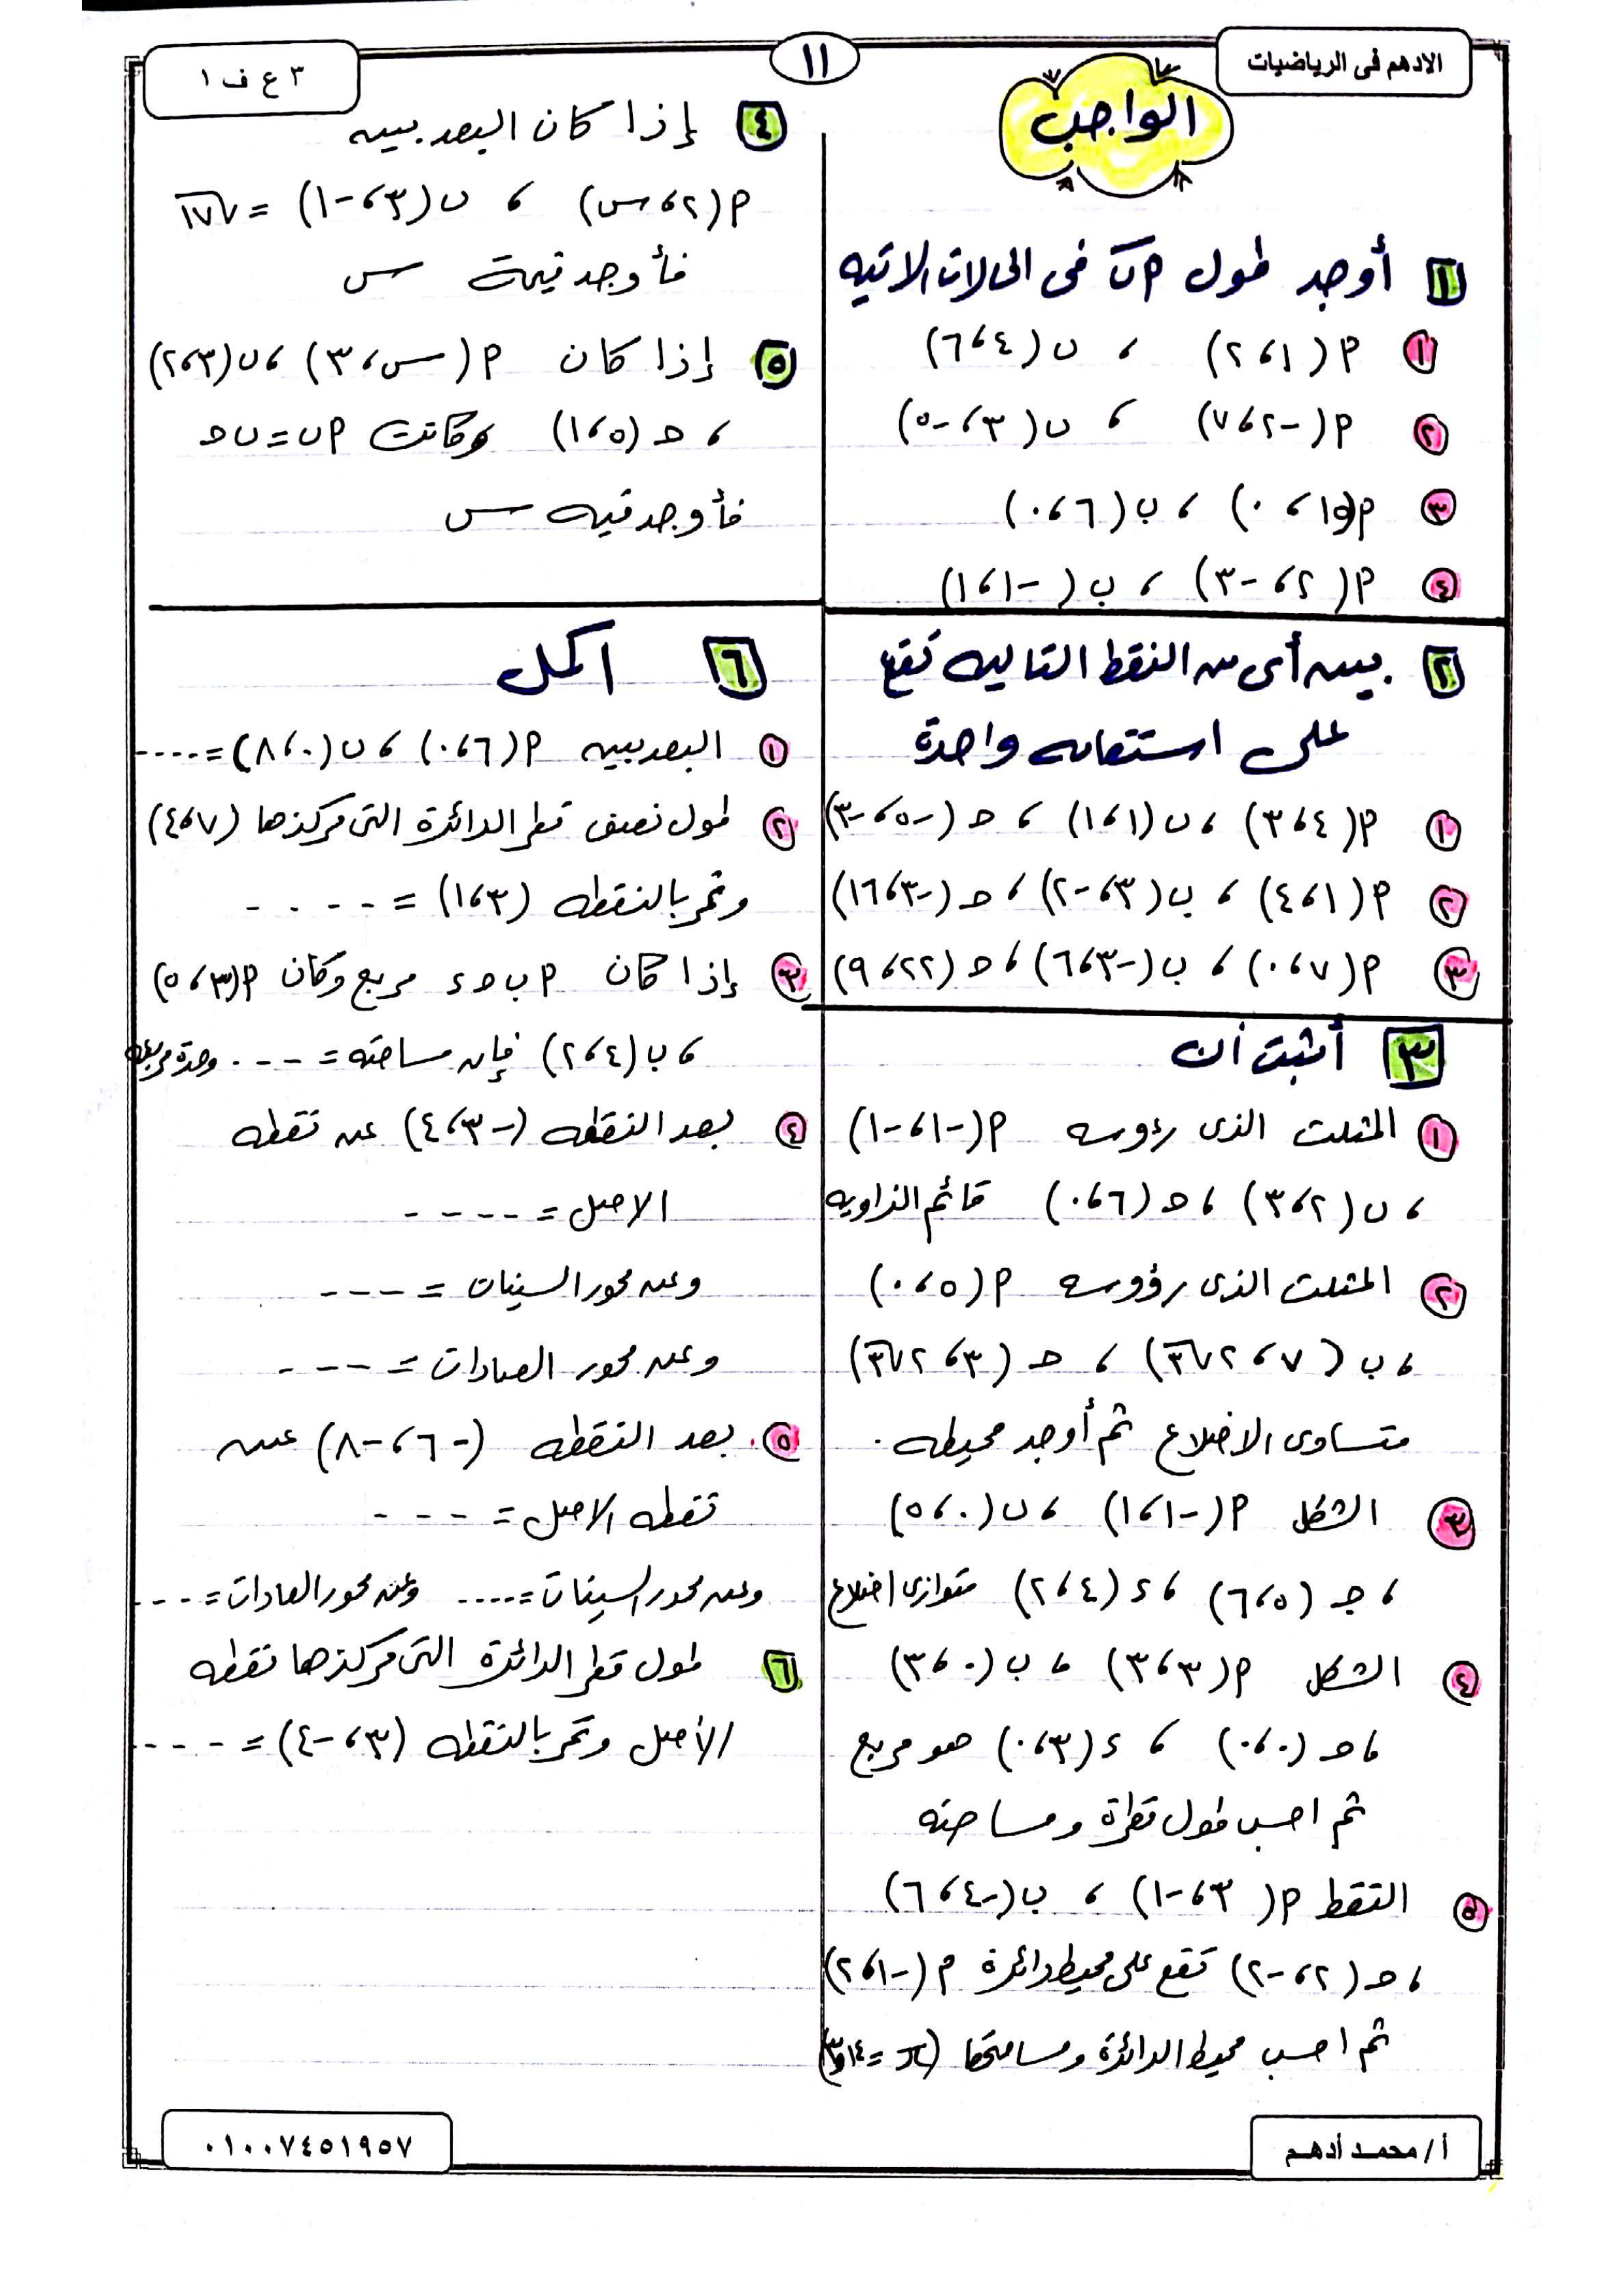 الادهم فى الرياضيات
١١
٣ ع ف ١
الواجب
١ أوجد طول م ب فى الحالات الاتيه
١ م(١ ، ٢) ، ب(٤ ، ٦)
٢ م(-٢ ، ٧) ، ب(٣ ، -٥)
٣ م(١٥ ، ٠) ، ب(٦ ، ٠)
٤ م(٢ ، -٣) ، ب(-١ ، ١)
٢ بين أى من النقط التاليه تقع
على استقامه واحدة
١ م(٤ ، ٣) ، ب(١ ، ١) ، ح(-٥ ، -٣)
٢ م(١ ، ٤) ، ب(٣ ، -٢) ، ح(-٣ ، ١٦)
٣ م(٧ ، ٠) ، ب(-٣ ، ٦) ، ح(٢٢ ، ٩)
٣ أثبت أن
١ المثلث الذى رءوسه م(-١ ، -١)
، ب(٢ ، ٣) ، ح(٦ ، ٠) قائم الزاويه
٢ المثلث الذى رؤوسه م(٥ ، ٠)
، ب(٧ ، ٢√٣) ، ح(٣ ، ٢√٣)
متساوى الاضلاع ثم أوجد محيطه.
٣ الشكل م(-١ ، ١) ، ب(٠ ، ٥)
، جـ(٥ ، ٦) ، ء(٤ ، ٢) متوازى اضلاع
٤ الشكل م(٣ ، ٣) ، ب(٠ ، ٣)
، ح(٠ ، ٠) ، ء(٣ ، ٠) هو مربع
ثم احسب طول قطرة ومساحته
٥ النقط م(٣ ، -١) ، ب(-٤ ، ٦)
، ح(٢ ، -٢) تقع على محيط دائرة م(-١ ، ٢)
ثم احسب محيط الدائرة ومساحتها (π = ٣,١٤)
٤ إذا كان البعد بين
م(٢ ، س) ، ب(٣ ، -١) = √١٧
فأوجد قيمة س
٥ إذا كان م(س ، ٣) ، ب(٣ ، ٢)
، ح(٥ ، ١) وكانت م ب = ب ح
فأوجد قيمه س
٦ اكمل
١ البعد بين م(٦ ، ٠) ، ب(٠ ، ٨) = ----
٢ طول نصف قطر الدائرة التى مركزها (٧ ، ٤)
وتمر بالنقطه (٣ ، ١) = ----
٣ إذا كان م ب ح ء مربع وكان م(٣ ، ٥)
، ب(٤ ، ٢) فإن مساحته = --- وحدة مربعه
٤ بعد النقطه (-٣ ، ٤) عن نقطه
الاصل = ----
وعن محور السينات = ---
وعن محور الصادات = ---
٥ بعد النقطه (-٦ ، -٨) عن
نقطه الاصل = ---
وعن محور السينات = ---- وعن محور الصادات = ---
٦ طول قطر الدائرة التى مركزها نقطه
الأصل وتمر بالنقطه (٣ ، -٤) = ----
أ/ محمد أدهم
٠١٠٠٧٤٥١٩٥٧